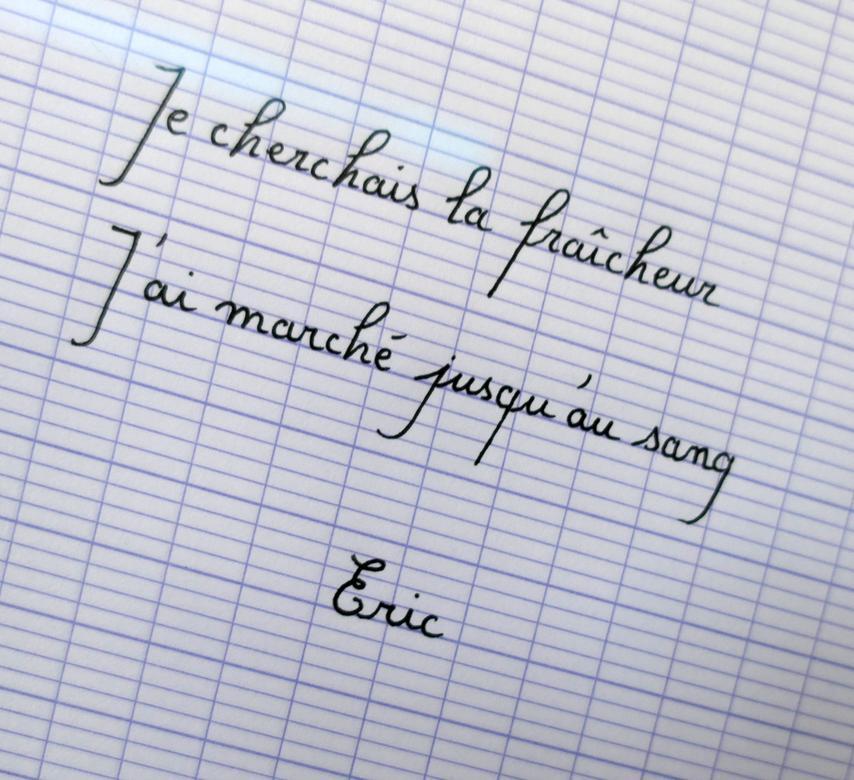 Je cherchais la fraîcheur
J'ai marché jusqu'au sang
Eric